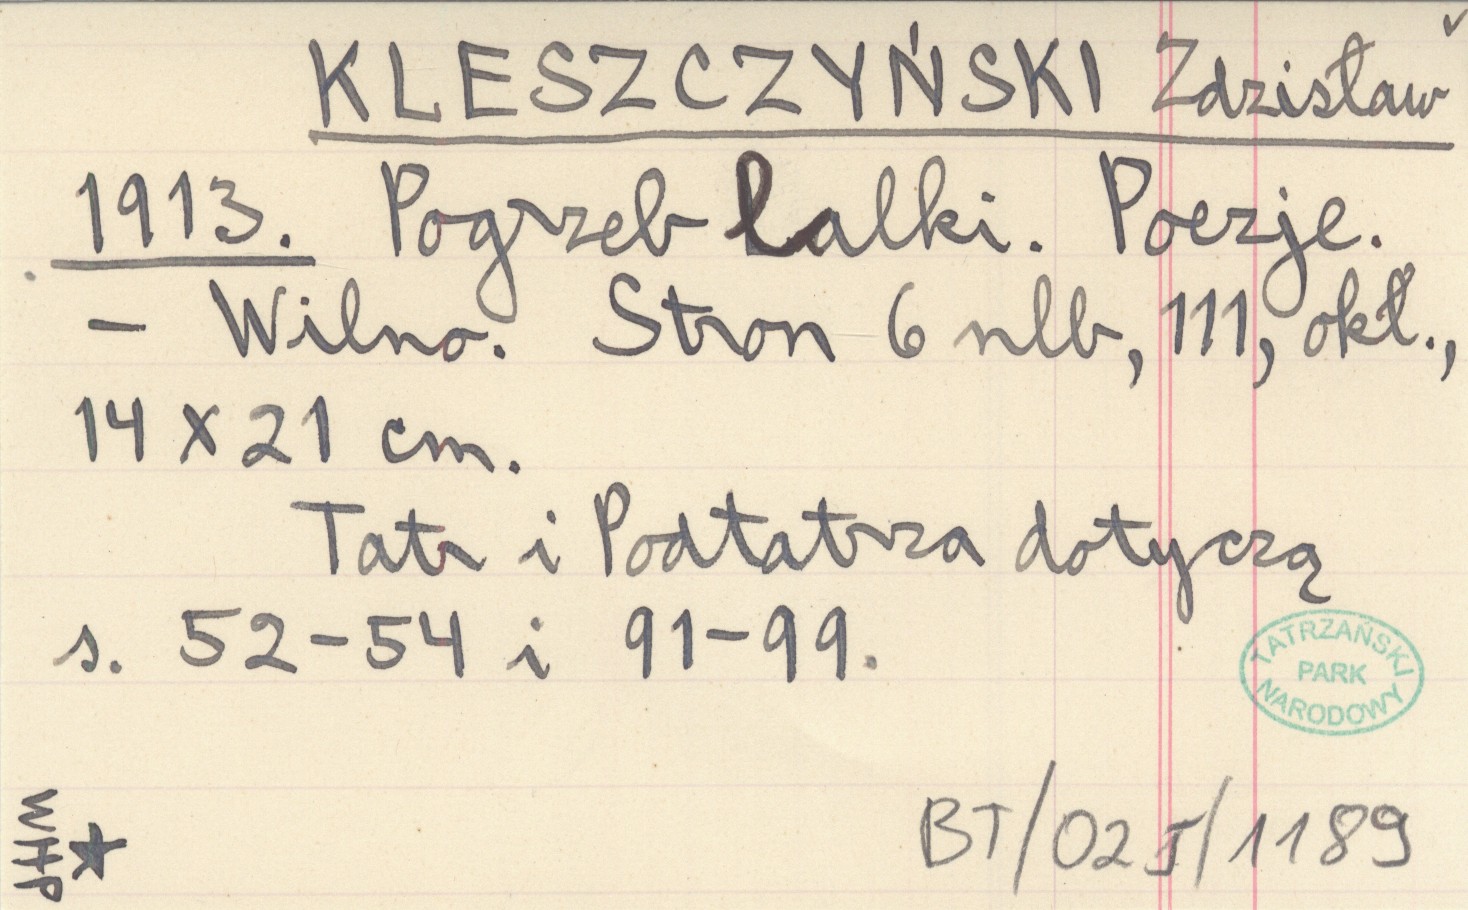 KLESZCZYŃSKI Zdzisław
1913. Pogrzeb lalki. Poezje.
– Wilno. Stron 6 nlb, 111, okł.,
14 x 21 cm.
Tatr i Podtatrza dotyczą
s. 52–54 i 91–99.
TATRZAŃSKI
PARK
NARODOWY
WHP
BT/02 I/1189